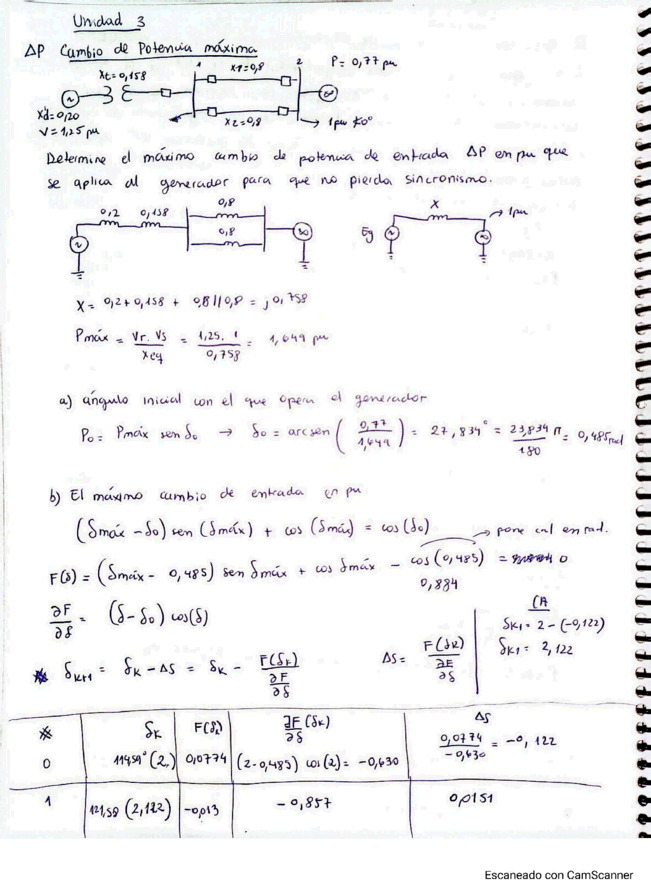 Unidad 3
ΔP Cambio de Potencia máxima
Xt=0,158
1
X1=0,8
2
P = 0,77 pu
X'd=0,20
V=1,25 pu
X2=0,8
1pu ∡0°
Determine el máximo cambio de potencia de entrada ΔP en pu que
se aplica al generador para que no pierda sincronismo.
0,2 0,158
0,8
0,8
X
1pu
Eg
X = 0,2 + 0,158 + 0,8//0,8 = j0,758
Pmáx = Vr. Vs / Xeq = 1,25. 1 / 0,758 = 1,649 pu
a) ángulo inicial con el que opera el generador
Po = Pmáx sen δo → δo = arcsen (0,77 / 1,649) = 27,834° = 23,834 π / 180 = 0,485 rad
b) El máximo cambio de entrada en pu
(δmáx - δo) sen (δmáx) + cos (δmáx) = cos (δo)
→ pone cal en rad.
F(δ) = (δmáx - 0,485) sen δmáx + cos δmáx - cos (0,485) = 0
0,884
∂F/∂δ = (δ - δo) cos(δ)
δK+1 = δK - ΔS = δK - F(δK) / ∂F/∂δ
ΔS = F(δK) / ∂F/∂δ
δK1 = 2 - (-0,122)
δK1 = 2,122
δK F(δK) ∂F/∂δ (δK) ΔS
0 114,59° (2) 0,0774 (2-0,485) cos (2) = -0,630 0,0774 / -0,630 = -0,122
1 121,58 (2,122) -0,013 -0,857 0,0151
Escaneado con CamScanner